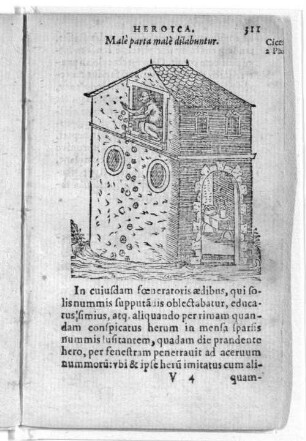 HEROICA. 311
Malè parta malè dilabuntur.
Cice
2 Ph
In cuiusdam fœneratoris ædibus, qui so-
lis nummis supputādis oblectabatur, educa-
tus simius, atq. aliquando per rimam quan-
dam conspicatus herum in mensa sparsis
nummis lusitantem, quadam die prandente
hero, per fenestram penetrauit ad aceruum
nummorū: vbi & ipse herū imitatus cum ali-
V 4 quam-